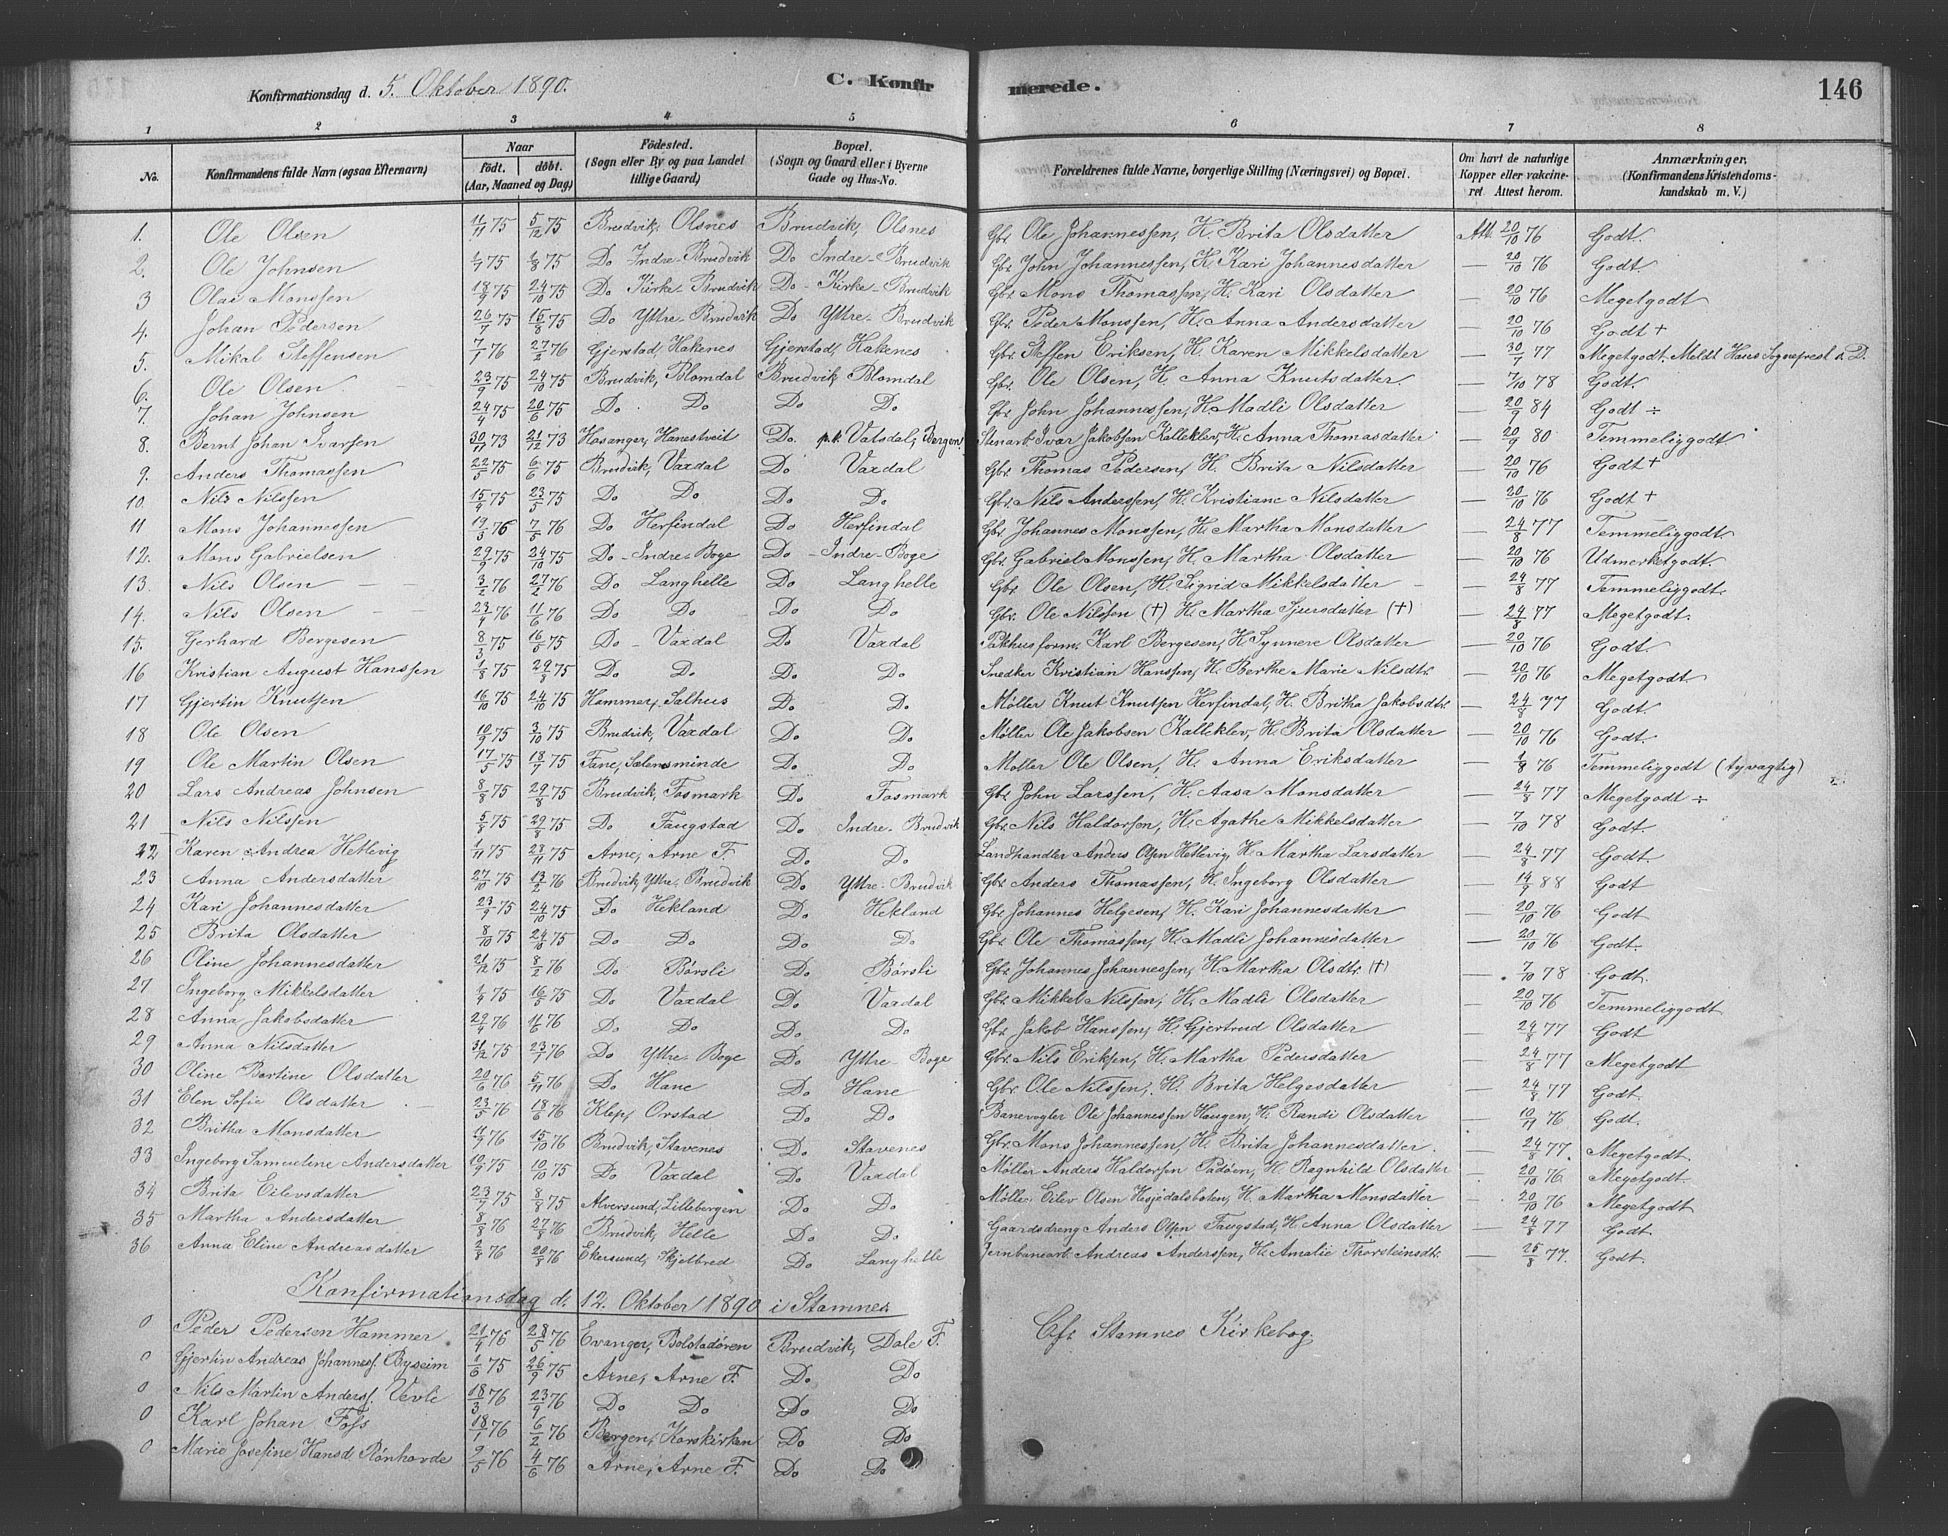 Konfirmationsdag d. 5. Oktober 1890. C. Konfirmerede. 146
1 2 3 4 5 6 7 8
No. Konfirmandens fulde Navn (ogsaa Efternavn) Naar født. døbt. (Aar, Maaned og Dag) Fødested. (Sogn eller By og paa Landet tillige Gaard) Bopæl. (Sogn og Gaard eller i Byerne Gade og Hus-No. Forældrenes fulde Navne, borgerlige Stilling (Næringsvei) og Bopæl. Om havt de naturlige Kopper eller vakcineret. Attest herom. Anmærkninger. (Konfirmandens Kristendomskundskab m. V.)
1. Ole Olsen 11/11 75 5/12 75 Brudvik, Olsnes Brudvik, Olsnes Gbr. Ole Johannessen, H. Brita Olsdatter Att. 20/10 76 Godt.
2. Ole Johnsen 1/7 75 1/8 75 Do Indre-Brudvik Do Indre-Brudvik Gbr. John Johannessen, H. Kari Johannesdatter — 20/10 76 Godt.
3 Olai Monssen 18/9 75 24/10 75 Do Kirke-Brudvik Do Kirke-Brudvik Gbr. Mons Thomassen, H. Kari Olsdatter — 20/10 76 Megetgodt
4. Johan Pedersen 26/7 75 15/8 75 Do Yttre-Brudvik Do Yttre-Brudvik Gbr. Peder Monssen, H. Anna Andersdatter — 20/10 76 Godt +
5. Mikal Steffensen 7/1 76 27/2 76 Gjerstad, Hakenes Gjerstad, Hakenes Gbr. Steffen Eriksen, H. Karen Mikkelsdatter — 30/7 77 Megetgodt. Meldt Haus Sogneprest s. D.
6. Ole Olsen 23/9 75 24/10 75 Brudvik, Blomdal Brudvik Blomdal Gbr. Ole Olsen, H. Anna Knutsdatter. — 7/10 78 Godt.
7. Johan Johnsen 24/4 75 20/6 75 Do Do Do Do Gbr. John Johannessen, H. Madli Olsdatter — 20/9 84 Godt ÷
8. Bernt Johan Ivarsen 30/11 73 21/12 73 Hosanger, Hanestveit Do. Vatsdal, Bergen Stenarb. Ivar Jakobsen Kalleklev, H. Anna Thomasdatter — 20/9 80 Temmeliggodt
9. Anders Thomassen 22/5 75 6/6 75 Brudvik, Vaxdal Do Vaxdal Gbr. Thomas Pedersen, H. Brita Nilsdatter — 20/10 76 Godt +
10. Nils Nilssen 15/4 75 23/5 75 Do Do Do Do Gbr. Nils Anderssen, H. Kristiane Nilsdatter — 20/10 76 Godt +
11 Mons Johannessen 19/3 76 7/5 76 Do Herfindal Do Herfindal Gbr. Johannes Monssen, H. Martha Monsdatter — 24/8 77 Temmeliggodt
12. Mons Gabrielsen 29/9 75 24/10 75 Do - Indre-Boge Do - Indre-Boge Gbr. Gabriel Monssen, H. Martha Olsdatter — 20/10 76 Udmerketgodt.
13. Nils Olsen 3/2 76 27/2 76 Do Langhelle Do Langhelle Gbr. Ole Olsen, H. Sigrid Mikkelsdatter — 24/8 77 Temmeliggodt
14. Nils Olsen 23/4 76 11/6 76 Do Do Do Do Gbr. Ole Nilssen (+) H. Martha Sjursdatter (+) — 24/8 77 Megetgodt.
15. Gerhard Bergesen 8/3 75 16/5 75 Do - Vaxdal Do Vaxdal Pakhusform. Karl Bergesen, H. Synnere Olsdatter — 20/10 76 Godt.
16 Kristian August Hanssen 1/8 75 29/8 75 Do Do. Do Do Snedker Kristian Hanssen, H. Berthe Marie Nilsdtr. — 20/10 76 Megetgodt
17 Gjertin Knutsen 16/10 75 24/10 75 Hammer, Salhus Do Do. Møller Knut Knutsen Herfindal, H. Britha Jakobsdtr. — 24/8 77 Godt.
18 Ole Olsen 10/9 75 3/10 75 Brudvik, Vaxdal Do Do. Møller Ole Jakobsen Kalleklev, H. Brita Olsdatter — 20/10 76 Godt.
19 Ole Martin Olsen 17/5 75 18/7 75 Fane, Sælensminde Do Do. Møller Ole Olsen, H. Anna Eriksdatter — 1/9 76 Temmeliggodt (tyvagtig)
20 Lars Andreas Johnsen 8/8 75 29/8 75 Brudvik, Fosmark Do Fosmark Gbr. John Larssen, H. Aasa Monsdatter — 24/8 77 Megetgodt ÷
21 Nils Nilssen 5/8 75 29/8 75 Do Faugstad Do Indre-Brudvik Gbr. Nils Haldorsen, H. Agathe Mikkelsdatter — 7/10 78 Godt.
22 Karen Andrea Hetlevig 1/11 75 28/11 75 Arne, Arne F. Do Do. Landhandler Anders Olsen Hetlevig H. Martha Larsdatter — 24/8 77 Godt
23 Anna Andersdatter 27/10 75 13/2 76 Brudvik, Yttre-Brudvik Do Yttre-Brudvik Gbr. Anders Thomassen, H. Ingeborg Olsdatter — 14/9 88 Godt
24 Kari Johannesdatter 23/9 75 24/10 75 Do Hekland Do Hekland Gbr. Johannes Helgesen, H. Kari Johannesdatter — 20/10 76 Godt
25 Brita Olsdatter 8/10 75 24/10 75 Do Do Do Do. Gbr. Ole Thomassen, H. Madli Johannesdatter — 20/10 76 Godt.
26 Oline Johannesdatter 21/12 75 8/2 76 Do Børsli Do Børsli Gbr. Johannes Johannessen, H. Martha Olsdtr. (+) — 7/10 78 Godt.
27 Ingeborg Mikkelsdatter 1/4 75 16/5 75 Do Vaxdal Do Vaxdal Gbr. Mikkel Nilssen, H. Madli Olsdatter — 20/10 76 Temmeliggodt
28 Anna Jakobsdatter 29/4 76 11/6 76 Do Do Do Do. Gbr. Jakob Hanssen, H. Gjertrud Olsdatter — 24/8 77 Godt
29 Anna Nilsdatter 31/12 75 23/1 76 Do Yttre-Boge Do Yttre Boge Gbr. Nils Eriksen, H. Martha Pedersdatter — 24/8 77 Megetgodt
30 Oline Bertine Olsdatter 20/6 76 5/11 76 Do Hane Do Hane Gbr. Ole Nilssen, H. Brita Helgesdatter — 24/8 77 Godt
31 Elen Sofie Olsdatter 23/5 76 18/6 76 Klep, Orstad Do Do. Banevogter Ole Johannessen Haugen, H. Randi Olsdatter — 10/11 76 Godt.
32 Britha Monsdatter 11/9 76 15/10 76 Brudvik, Stavenes Do Stavenes Gbr. Mons Johannessen, H. Brita Johannesdatter. — 24/8 77. Megetgodt.
33 Ingeborg Samueline Andersdatter 10/9 75 10/10 75 Do Vaxdal Do Vaxdal Møller Anders Haldorsen Padøen, H. Ragnhild Olsdatter — 20/10 76 Megetgodt.
34 Brita Eilevsdatter 23/7 75 8/8 75 Alversund, Lillebergen Do Do. Møller Eilev Olsen Hesjedalsboten, H. Martha Monsdatter — 20/10 76 Megetgodt
35 Martha Andersdatter 8/8 76 27/8 76 Brudvik, Helle Do Do. Gaardsdreng Anders Olsen Faugstad, H. Anna Olsdatter — 24/8 77 Godt
36 Anna Eline Andreasdatter 2/8 76 20/8 76 Ekersund, Skjelbred Do Langhelle Jernbanearb. Andreas Anderssen, H. Amalie Thorsteinsdtr. — 25/8 77. Godt.
Konfirmationsdag d. 12. Oktober 1890 i Stamnes
0 Peder Pedersen Hammer 21/4 76 28/5 76 Evanger, Bolstadøren Brudvik, Dale F. Cfr. Stamnes Kirkebog.
0 Gjertin Andreas Johanness. Byseim 1/6 75 26/9 75 Arne, Arne F. Do Do
0 Nils Martin Anderss. Vevli 18/3 76 23/9 76 Do Do Do Do
0 Karl Johan Foss 18/1 76 6/2 76 Bergen, Korskirken Do Do
0 Marie Josefine Hansd. Rønhovde 2/5 76 4/6 76 Arne, Arne F. Do Do